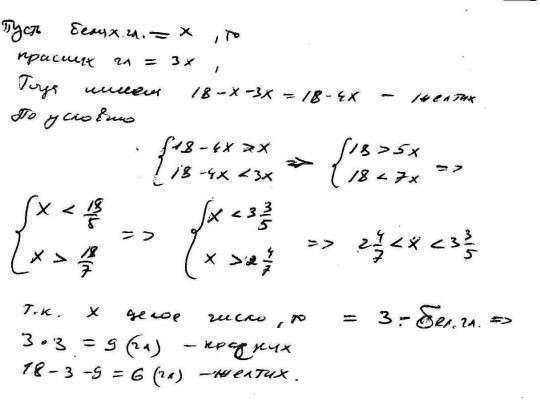 Пусть белых гл. = x, то
красных гл = 3x,
Тогда имеем 18-x-3x=18-4x - желтых
По условию
{18-4x>x => {18>5x
{18-4x<3x {18<7x =>
{x < 18/5 => {x < 3 3/5 => 2 4/7 < x < 3 3/5
{x > 18/7 {x > 2 4/7
Т.к. x целое число, то = 3 - бел. гл. =>
3·3 = 9 (гл) - красных
18-3-9=6 (гл) - желтых.